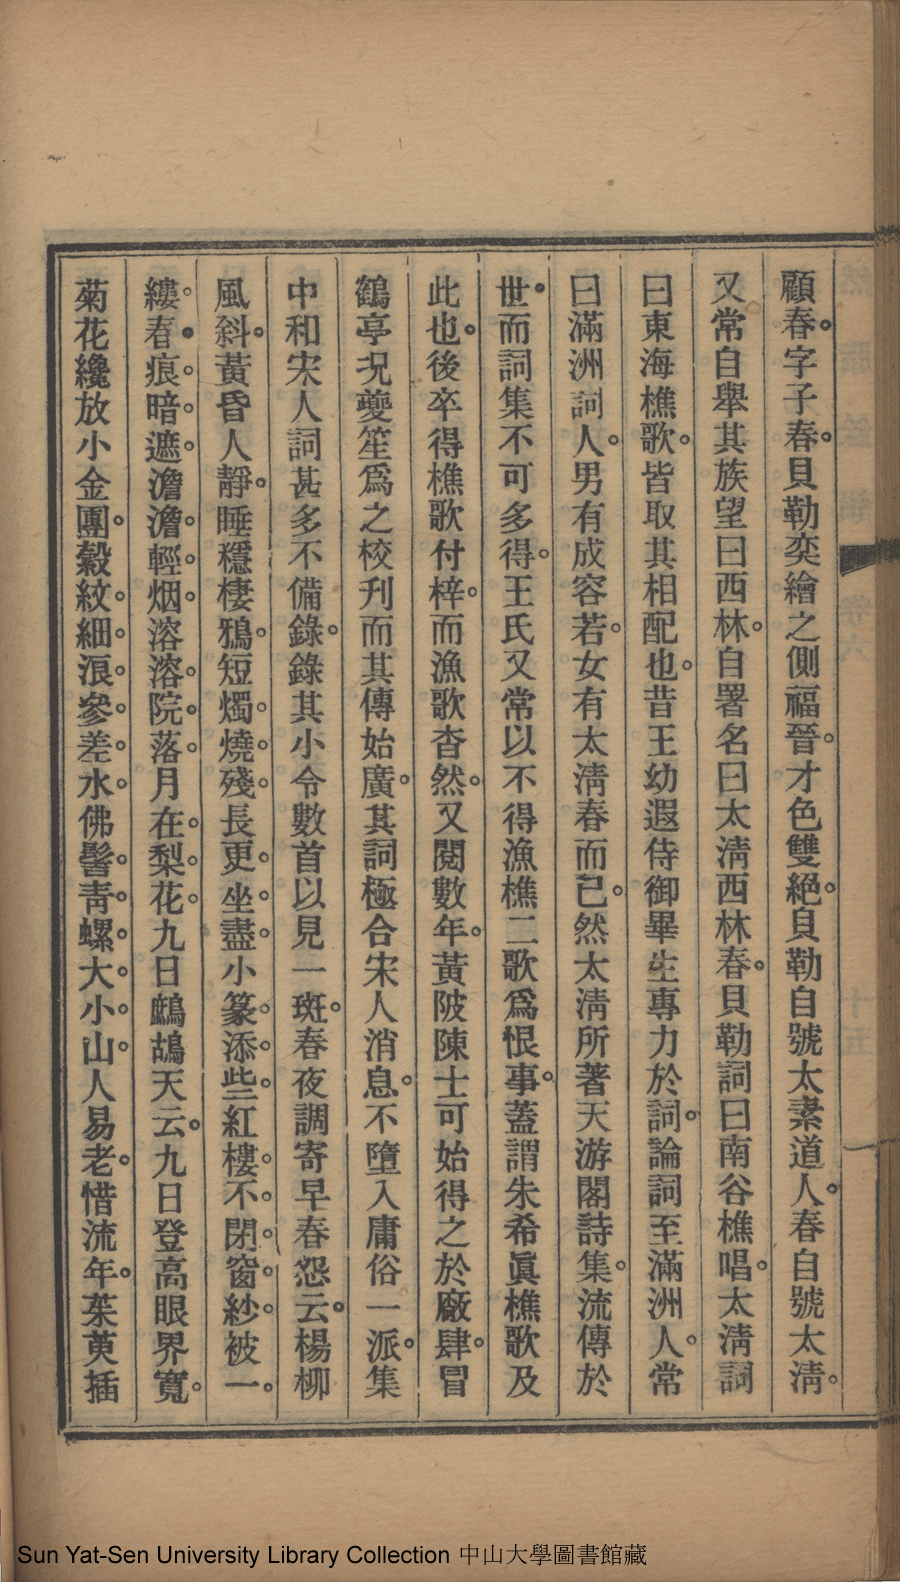 顧春字子春貝勒奕繪之側福晉。才色雙絕。貝勒自號太素道人。春自號太淸。
又常自舉其族望曰西林。自署名曰太淸西林春。貝勒詞曰南谷樵唱。太淸詞
曰東海樵歌。皆取其相配也。昔王幼遐侍御畢生專力於詞。論詞至滿洲人。常
曰滿洲詞人。男有成容若。女有太淸春而已。然太淸所著天游閣詩集。流傳於
世。而詞集不可多得。王氏又常以不得漁樵二歌爲恨事。蓋謂朱希眞樵歌及
此也。後卒得樵歌付梓。而漁歌杳然。又閱數年。黃陂陳士可始得之於廠肆。冒
鶴亭況夔笙爲之校刋而其傳始廣。其詞極合宋人消息。不墮入庸俗一派。集
中和宋人詞甚多不備錄。錄其小令數首以見一斑。春夜調寄早春怨云。楊柳
風斜。黃昏人靜。睡穩棲鴉。短燭燒殘。長更坐盡。小篆添些。紅樓不閉窗紗。被一
縷春痕暗遮。澹澹輕烟。溶溶院落。月在梨花。九日鷓鴣天云。九日登高眼界寬。
菊花纔放小金團。縠紋細浪參差水。佛髻靑螺大小山。人易老。惜流年。茱萸插
Sun Yat-Sen University Library Collection 中山大學圖書館藏